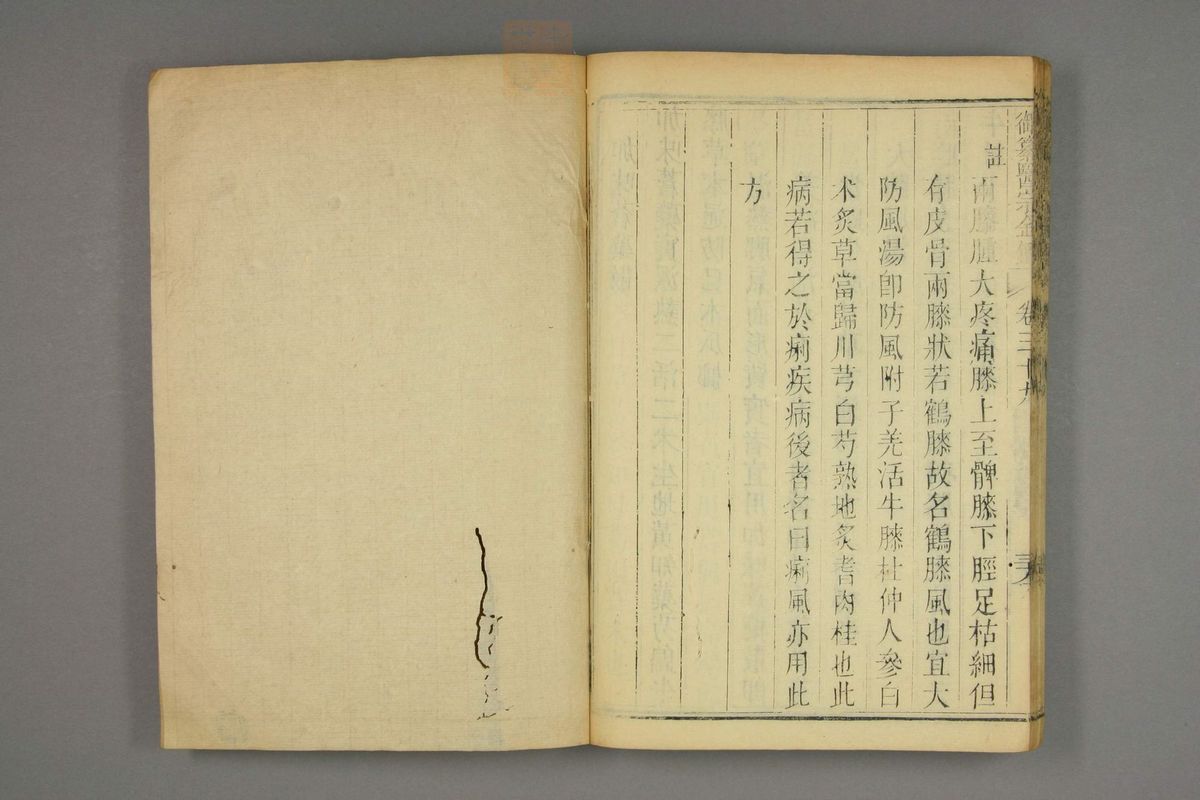 御纂醫宗金鑑 卷三十九
註
兩膝腫大疼痛膝上至髀膝下脛足枯細但
存皮骨兩膝狀若鶴膝故名鶴膝風也宜大
防風湯卽防風附子羌活牛膝杜仲人參白
术炙草當歸川芎白芍熟地炙耆肉桂也此
病若得之於痢疾病後者名曰痢風亦用此
方